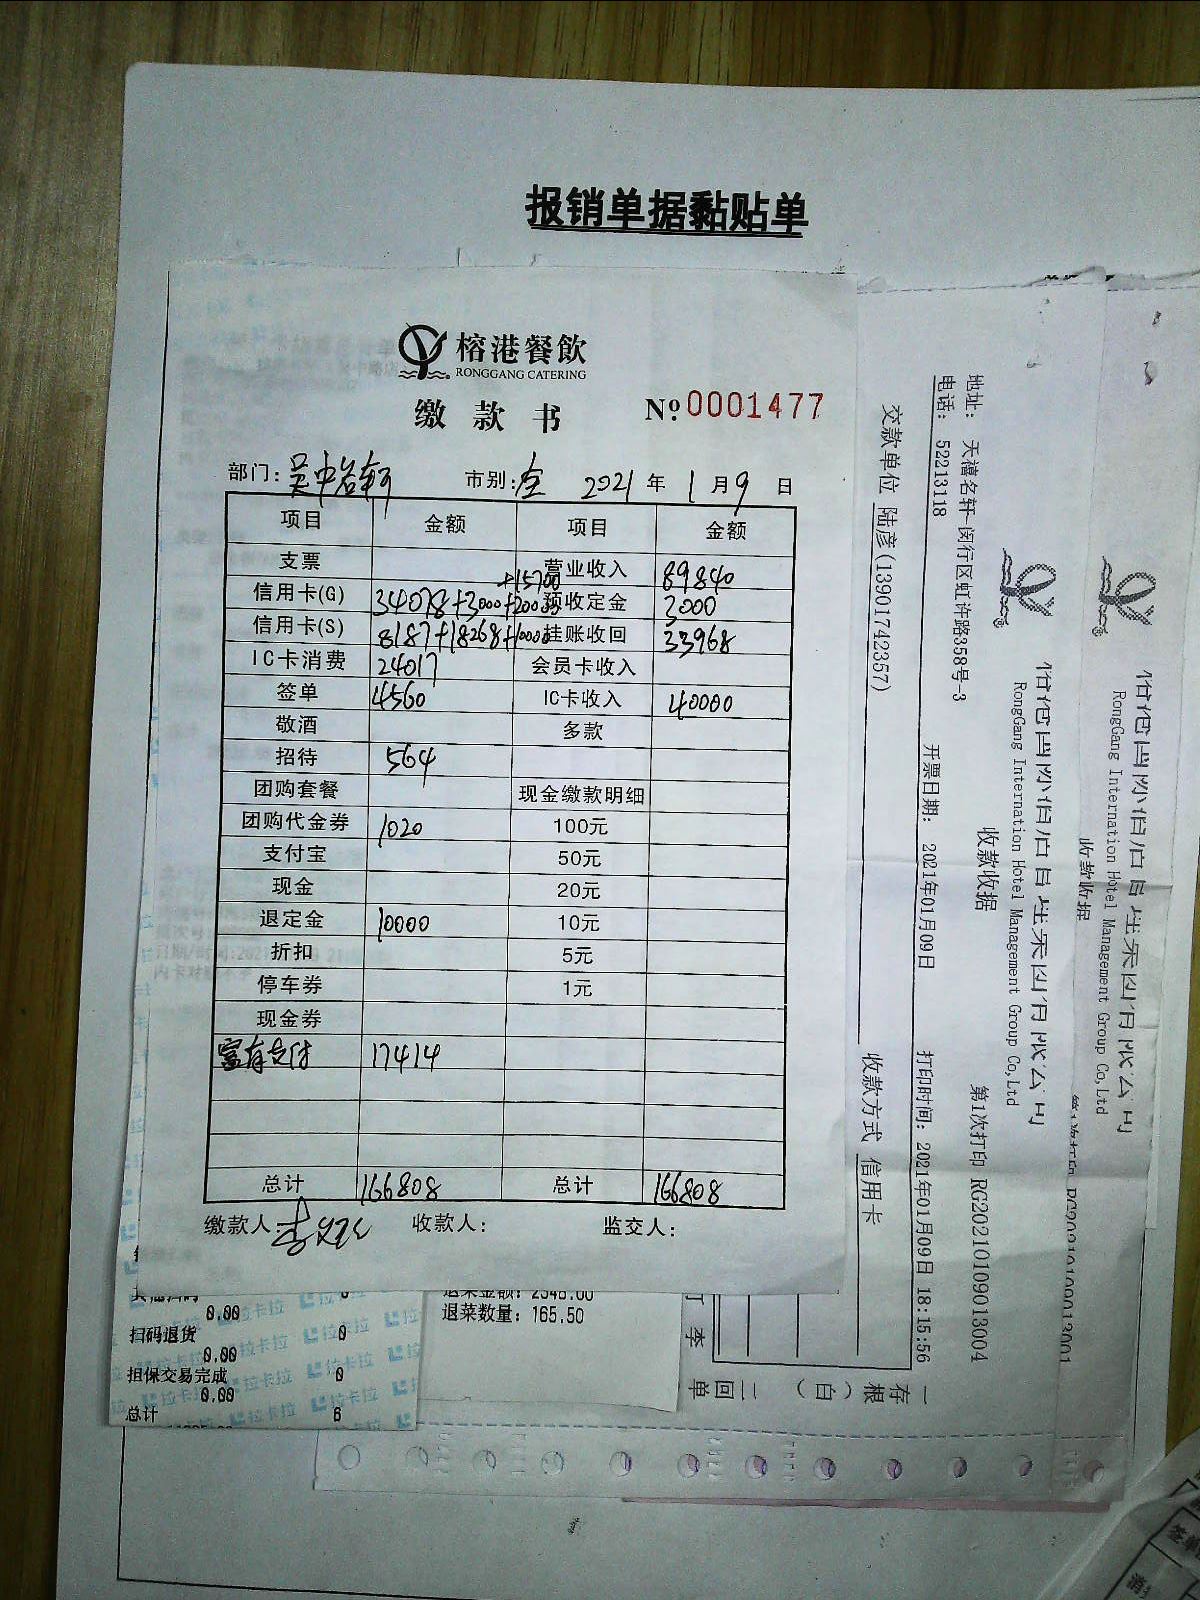 报销单据黏贴单
榕港餐飲
RONGGANG CATERING
缴款书
№ 0001477
部门: 吴中名轩 市别: 全 2021 年 1 月 9 日
项目 金额 项目 金额
支票 营业收入 89840
信用卡(G) 34078+3000+20000 +15700 预收定金 3000
信用卡(S) 8187+18268+10000 挂账收回 33968
IC卡消费 24017 会员卡收入
签单 4560 IC卡收入 40000
敬酒 多款
招待 564
团购套餐 现金缴款明细
团购代金券 1020 100元
支付宝 50元
现金 20元
退定金 10000 10元
折扣 5元
停车券 1元
现金券
富有支付 17414
总计 166808 总计 166808
缴款人: 收款人: 监交人:
0.00
扫码退货 0
0.00
担保交易完成 0
0.00
总计 6
拉卡拉
退菜金额: 2548.00
退菜数量: 165.50
RongGang Internation Hotel Management Group Co,Ltd
收款收据
RongGang Internation Hotel Management Group Co,Ltd
收款收据 第1次打印 RG20210109013004
地址: 天禧名轩-闵行区虹许路358号-3
电话: 52213118 开票日期: 2021年01月09日 打印时间: 2021年01月09日 18:15:56
交款单位 陆彦(13901742357) 收款方式 信用卡
一存根(白)
二回单
李
签单